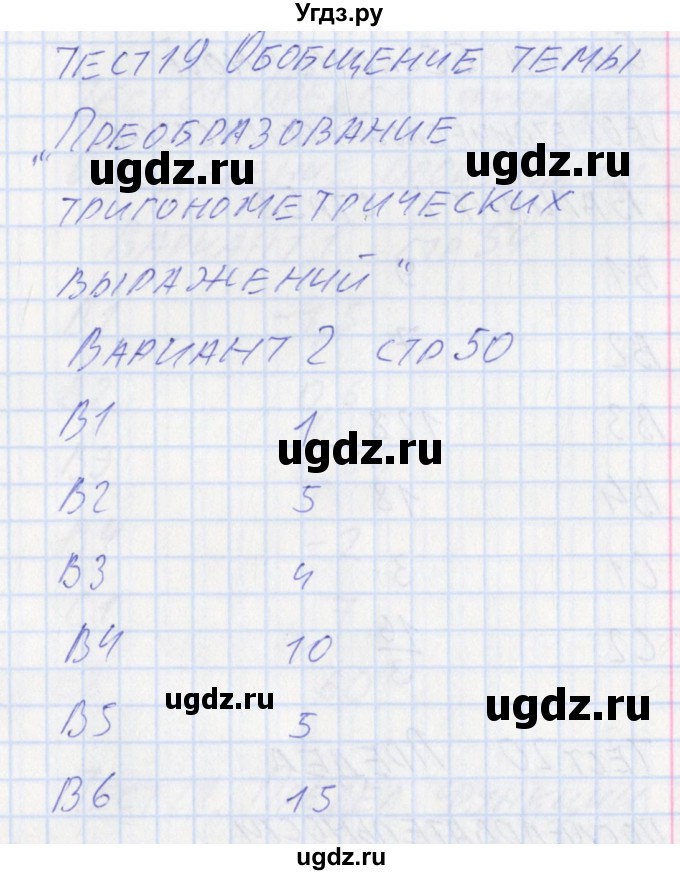 Угдз.ру
ТЕСТ 19 ОБОБЩЕНИЕ ТЕМЫ
"ПРЕОБРАЗОВАНИЕ
ugdz.ru ugdz.ru
ТРИГОНОМЕТРИЧЕСКИХ
ВЫРАЖЕНИЙ"
ВАРИАНТ 2 СТР 50
В1 1
ugdz.ru
В2 5
В3 4
В4 10
ugdz.ru ugdz.ru
В5 5
В6 15
ugdz.ru